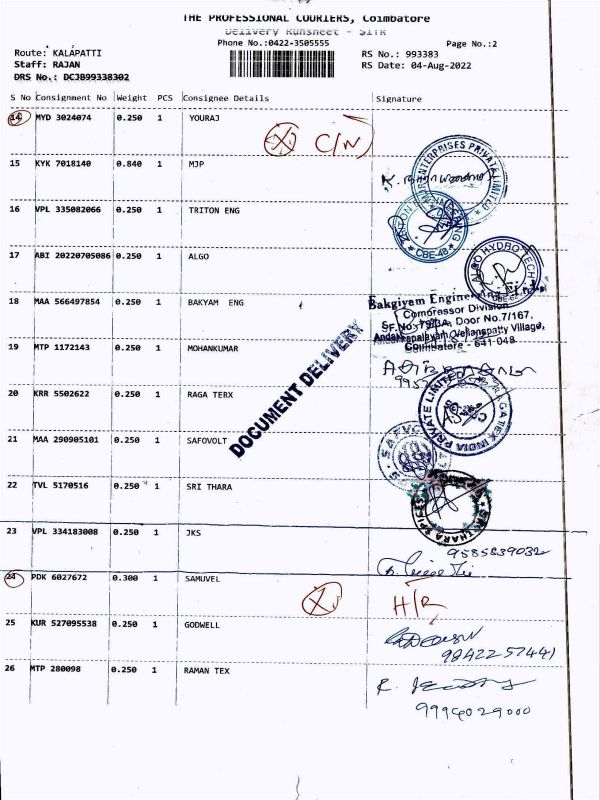 THE PROFESSIONAL COURIERS, Coimbatore
Delivery Runsheet - SITR
Phone No.:0422-3505555
Page No.:2
Route: KALAPATTI
RS No.: 993383
Staff: RAJAN
RS Date: 04-Aug-2022
DRS No.: DCJB99338302
S No Consignment No Weight PCS Consignee Details Signature
14 MYD 3024074 0.250 1 YOURAJ
C/N
15 KYK 7018140 0.840 1 MJP
ENTERPRISES PRIVATE LIMITED
16 VPL 335082066 0.250 1 TRITON ENG
CBE-48
17 ABI 20220705086 0.250 1 ALGO
ALGO HYDRO TECH
18 MAA 566497854 0.250 1 BAKYAM ENG
Bakgiyam Engineering
Compressor Division
SF.No: 79/3A, Door No.7/167,
Andakkapalayam, Vellanspatty Village,
Coimbatore - 641 048.
19 MTP 1172143 0.250 1 MOHANKUMAR
DOCUMENT DELIVERY
20 KRR 5502622 0.250 1 RAGA TERX
RAGATEX INDIA PRIVATE LIMITED
21 MAA 290905101 0.250 1 SAFOVOLT
22 TVL 5170516 0.250 1 SRI THARA
SRI THARA SPICES
23 VPL 334183008 0.250 1 JKS
9585839032
24 PDK 6027672 0.300 1 SAMUVEL
H/R
25 KUR 527095538 0.250 1 GODWELL
98422 57441
26 MTP 280098 0.250 1 RAMAN TEX
9994029000